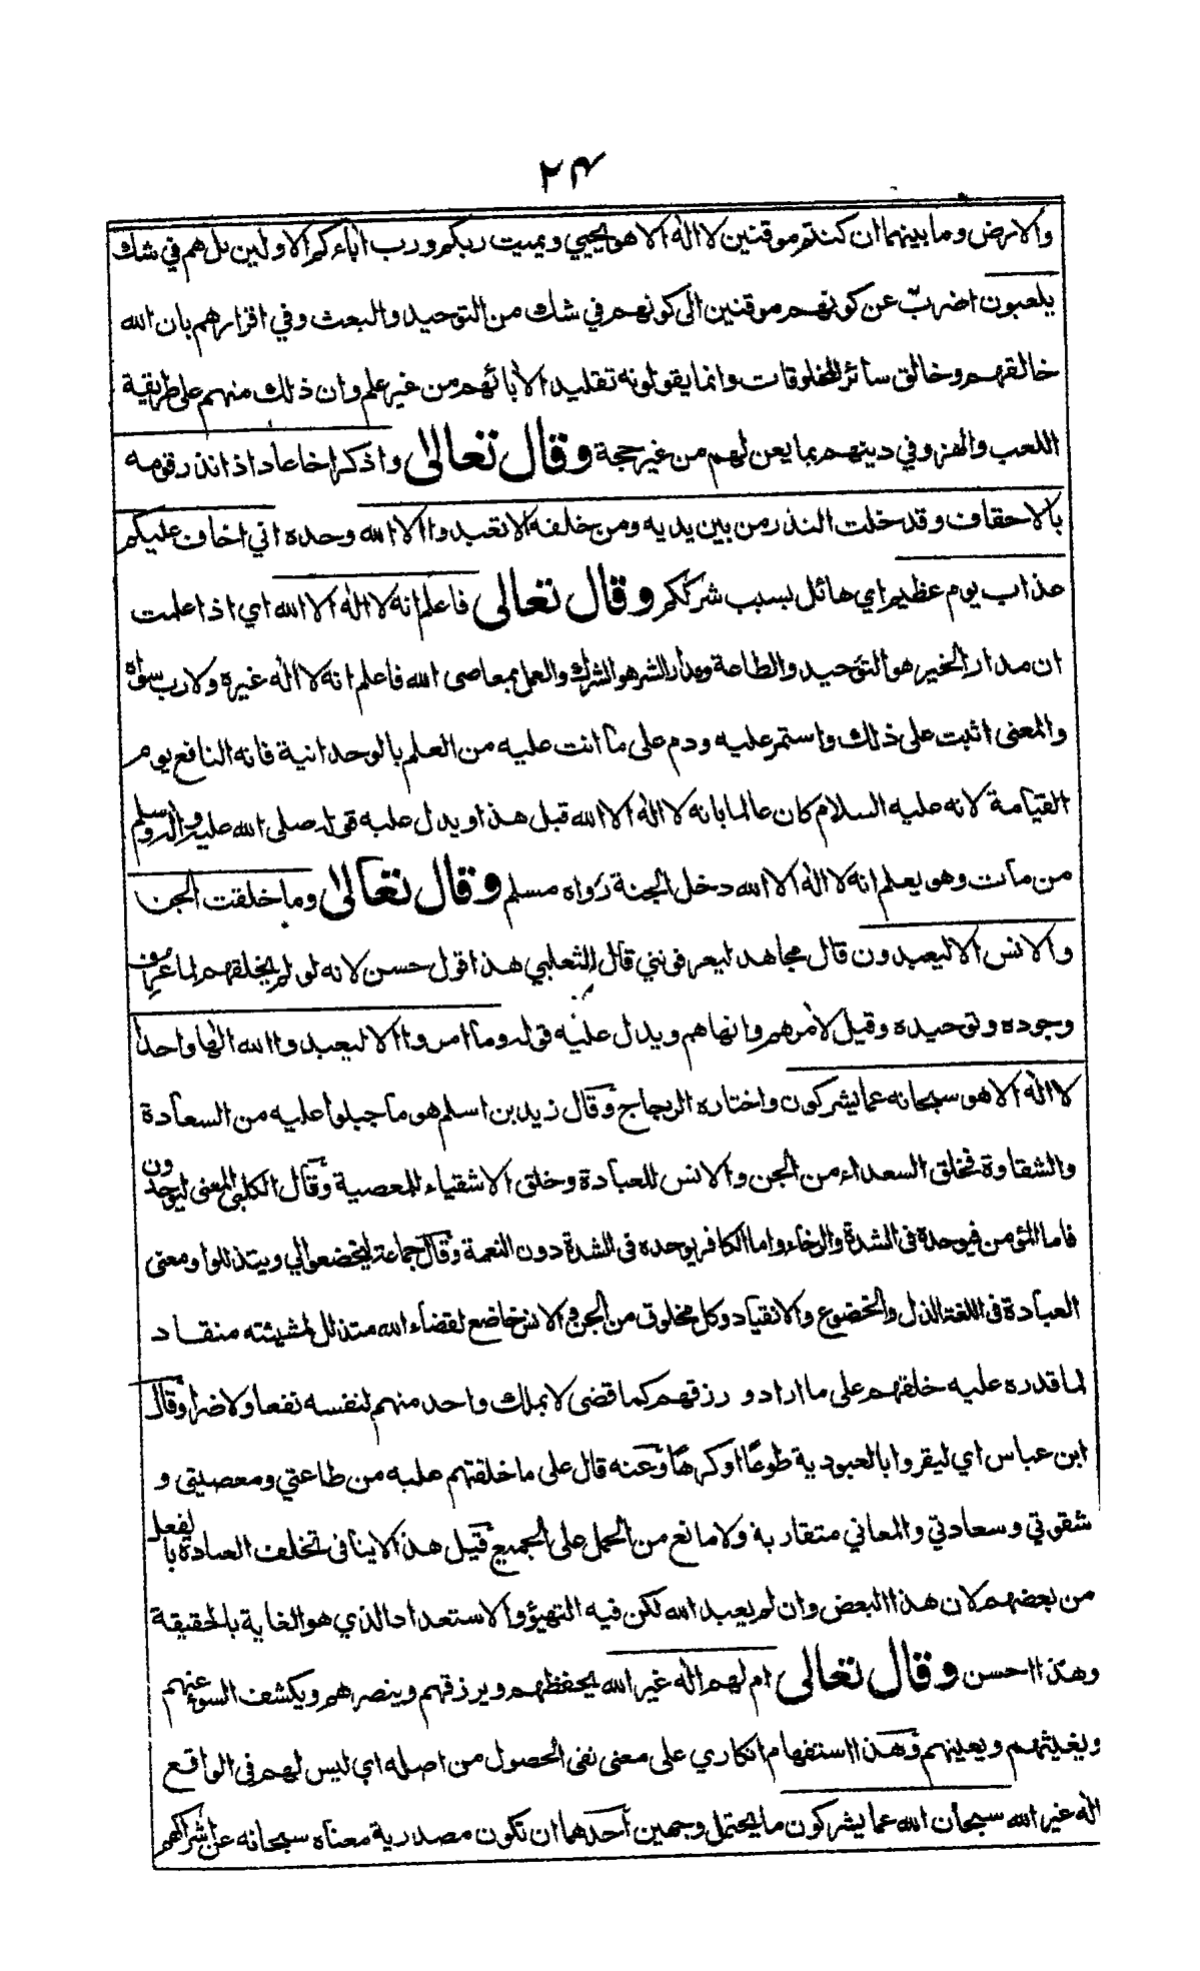 ٢٤
والارض وما بينهما ان كنتم موقنين لا اله الا هو يحيي ويميت ربكم ورب اباءكم الاولين بل هم في شك
يلعبون اضرب عن كونهم موقنين الى كونهم في شك من التوحيد والبعث وفي اقرارهم بان الله
خالقهم وخالق سائر المخلوقات وانما يقولونه تقليد الأبائهم من غير علم وان ذلك منهم على طريقة
اللعب والهزو في دينهم بما يعن لهم من غير حجة وقال تعالى واذكر اخا عاد اذ انذر قومه
بالاحقاف وقد خلت النذر من بين يديه ومن خلفه الا تعبدوا الا الله وحده اني اخاف عليكم
عذاب يوم عظيم اي هائل بسبب شرككم وقال تعالى فاعلم انه لا اله الا الله اي اذا علمت
ان مدار الخير هو التوحيد والطاعة ومدار الشر هو الشرك والعمل بمعاصى الله فاعلم انه لا اله غيره ولا رب سواه
والمعنى اثبت على ذلك واستمر عليه ودم على ما انت عليه من العلم بالوحدانية فانه النافع يوم
القيامة لانه عليه السلام كان عالما بانه لا اله الا الله قبل هذا ويدل عليه قوله صلى الله عليه واله وسلم
من مات وهو يعلم انه لا اله الا الله دخل الجنة رواه مسلم وقال تعالى وما خلقت الجن
والانس الا ليعبدون قال مجاهد ليعرفونني قال الثعلبي هذا قول حسن لانه لو لم يخلقهم لما عرف
وجوده وتوحيده وقيل لأمرهم وانهاهم ويدل عليه قوله وما امروا الا ليعبدوا الله الها واحدا
لا اله الا هو سبحانه عما يشركون واختاره الزجاج وقال زيد بن اسلم هو ما جبلوا عليه من السعادة
والشقاوة فخلق السعداء من الجن والانس للعبادة وخلق الاشقياء للمعصية وقال الكلبي المعنى ليوحدون
فاما المؤمن فيوحده فى الشدة والرخاء واما الكافر يوحده فى الشدة دون النعمة وقال جماعة ليخضعوا لي ويتذللوا ومعنى
العبادة فى اللغة الذل والخضوع والانقياد وكل مخلوق من الجن والانس خاضع لقضاء الله متذلل لمشيئته منقاد
لما قدره عليه خلقهم على ما اراد و رزقهم كما قضى لا يملك واحد منهم لنفسه نفعا ولا ضرا وقال
ابن عباس اي ليقروا بالعبودية طوعًا او كرهًا وعنه قال على ما خلقتهم عليه من طاعتي ومعصيتي و
شقوتي وسعادتي والمعاني متقاربة ولا مانع من الحمل على الجميع قيل هذا لا ينافى تخلف العبادة بالفعل
من بعضهم لان هذا البعض وان لم يعبد الله لكن فيه التهيؤ والاستعداد الذي هو الغاية بالحقيقة
وهذا احسن وقال تعالى ام لهم اله غير الله يحفظهم ويرزقهم وينصرهم ويكشف السوء عنهم
ويغيثهم ويعينهم وهذا استفهام انكاري على معنى نفى الحصول من اصله اي ليس لهم فى الواقع
اله غير الله سبحان الله عما يشركون ما يحتمل وجهين أحدهما ان تكون مصدرية معناه سبحانه عن اشراكهم